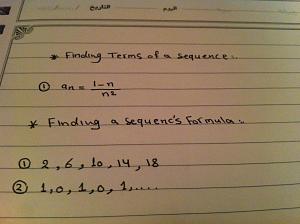 التاريخ اليوم
* Finding Terms of a sequence:.
① an = 1-n / n²
* Finding a sequence's Formula:.
① 2, 6, 10, 14, 18
② 1, 0, 1, 0, 1, ....